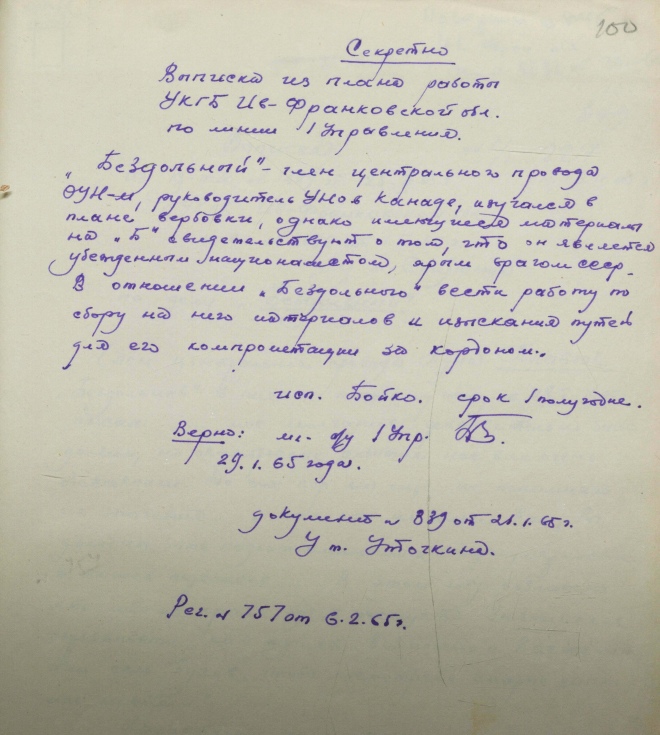 100
Секретно
Выписка из плана работы
УКГБ Ив-Франковской обл.
по линии 1 Управления.
„Бездольный"- член центрального провода
ОУН-м, руководитель УНО в Канаде, изучался в
плане вербовки, однако имеющиеся материалы
на „Б" свидетельствуют о том, что он является
убежденным националистом, ярым врагом ссср.
В отношении „Бездольного" вести работу по
сбору на него материалов и изыскания путей
для его компрометации за кордоном.
исп. Бойко. срок 1 полугодие.
Верно: мл. о/у 1 Упр.
29.1.65 года.
документ № 839 от 21.1.65 г.
У т. Уточкина.
Рег. № 757 от 6.2.65 г.